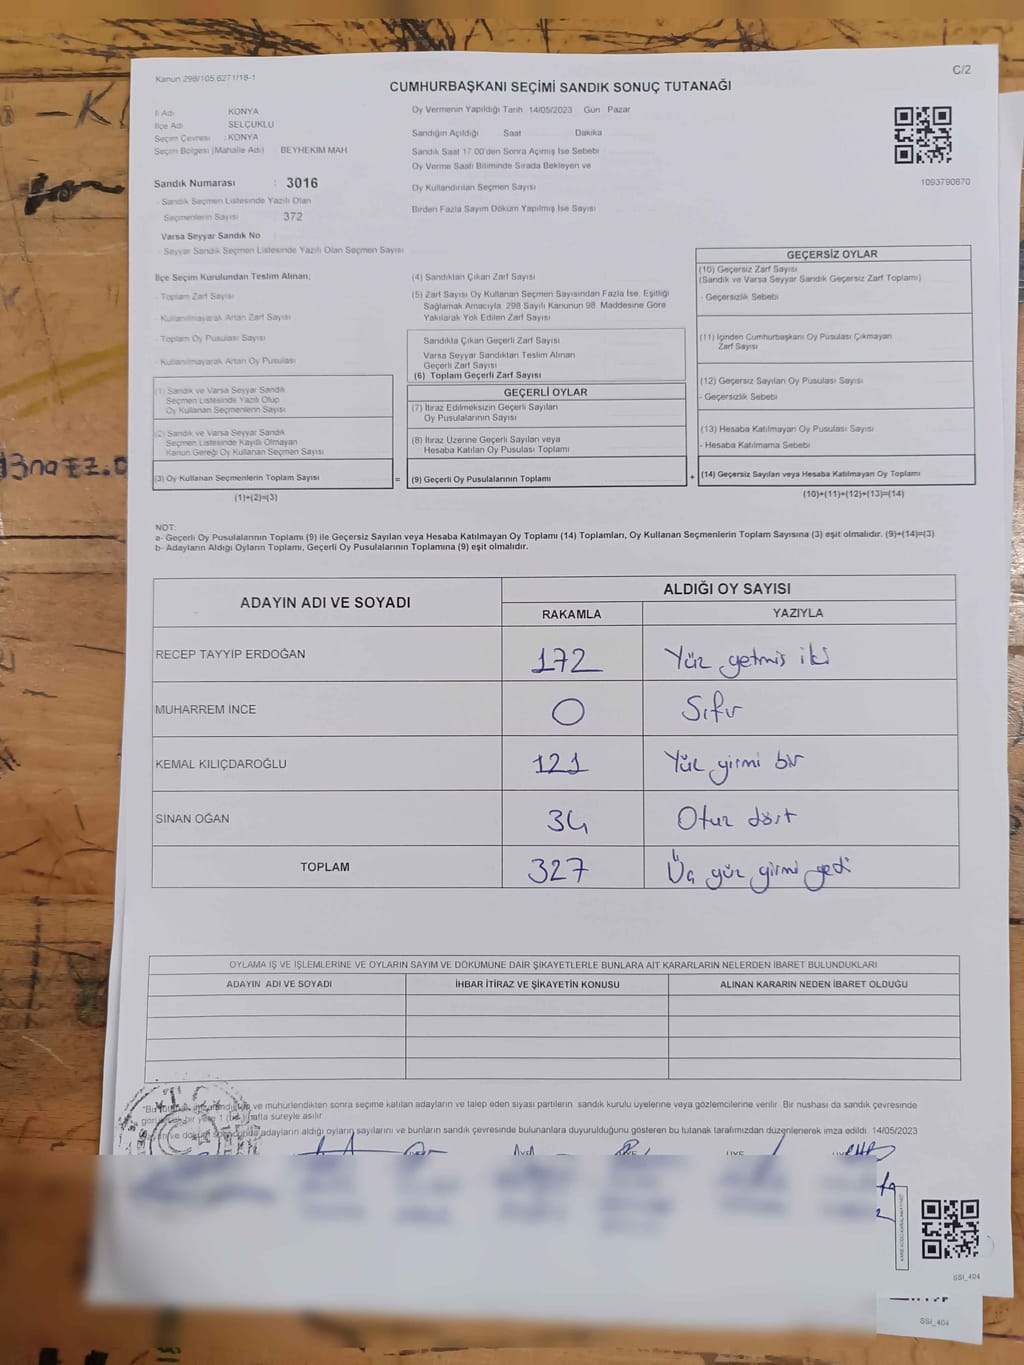 Kanun 298/105,6271/18-1
C/2
CUMHURBAŞKANI SEÇİMİ SANDIK SONUÇ TUTANAĞI
İl Adı KONYA
İlçe Adı SELÇUKLU
Seçim Çevresi : KONYA
Seçim Bölgesi (Mahalle Adı) BEYHEKİM MAH
Sandık Numarası : 3016
- Sandık Seçmen Listesinde Yazılı Olan
Seçmenlerin Sayısı 372
Varsa Seyyar Sandık No
- Seyyar Sandık Seçmen Listesinde Yazılı Olan Seçmen Sayısı
Oy Vermenin Yapıldığı Tarih 14/05/2023 Gün Pazar
Sandığın Açıldığı Saat Dakika
Sandık Saat 17:00'den Sonra Açımış İse Sebebi
Oy Verme Saati Bitiminde Sırada Bekleyen ve
Oy Kullandırılan Seçmen Sayısı
Birden Fazla Sayım Döküm Yapılmış İse Sayısı
1093790870
İlçe Seçim Kurulundan Teslim Alınan;
- Toplam Zarf Sayısı
- Kullanılmayarak Artan Zarf Sayısı
- Toplam Oy Pusulası Sayısı
- Kullanılmayarak Artan Oy Pusulası
(1) Sandık ve Varsa Seyyar Sandık
Seçmen Listesinde Yazılı Olup
Oy Kullanan Seçmenlerin Sayısı
(2) Sandık ve Varsa Seyyar Sandık
Seçmen Listesinde Kayıtlı Olmayan
Kanun Gereği Oy Kullanan Seçmen Sayısı
(3) Oy Kullanan Seçmenlerin Toplam Sayısı
(1)+(2)=(3)
(4) Sandıktan Çıkan Zarf Sayısı
(5) Zarf Sayısı Oy Kullanan Seçmen Sayısından Fazla İse, Eşitliği
Sağlamak Amacıyla, 298 Sayılı Kanunun 98. Maddesine Göre
Yakılarak Yok Edilen Zarf Sayısı
Sandıkta Çıkan Geçerli Zarf Sayısı
Varsa Seyyar Sandıktan Teslim Alınan
Geçerli Zarf Sayısı
(6) Toplam Geçerli Zarf Sayısı
GEÇERLİ OYLAR
(7) İtiraz Edilmeksizin Geçerli Sayılan
Oy Pusulalarının Sayısı
(8) İtiraz Üzerine Geçerli Sayılan veya
Hesaba Katılan Oy Pusulası Toplamı
= (9) Geçerli Oy Pusulalarının Toplamı +
GEÇERSİZ OYLAR
(10) Geçersiz Zarf Sayısı
(Sandık ve Varsa Seyyar Sandık Geçersiz Zarf Toplamı)
- Geçersizlik Sebebi
(11) İçinden Cumhurbaşkanı Oy Pusulası Çıkmayan
Zarf Sayısı
(12) Geçersiz Sayılan Oy Pusulası Sayısı
- Geçersizlik Sebebi
(13) Hesaba Katılmayan Oy Pusulası Sayısı
- Hesaba Katılmama Sebebi
(14) Geçersiz Sayılan veya Hesaba Katılmayan Oy Toplamı
(10)+(11)+(12)+(13)=(14)
NOT:
a- Geçerli Oy Pusulalarının Toplamı (9) ile Geçersiz Sayılan veya Hesaba Katılmayan Oy Toplamı (14) Toplamları, Oy Kullanan Seçmenlerin Toplam Sayısına (3) eşit olmalıdır. (9)+(14)=(3)
b- Adayların Aldığı Oyların Toplamı, Geçerli Oy Pusulalarının Toplamına (9) eşit olmalıdır.
ADAYIN ADI VE SOYADI
ALDIĞI OY SAYISI
RAKAMLA YAZIYLA
RECEP TAYYİP ERDOĞAN 172 Yüz yetmiş iki
MUHARREM İNCE 0 Sıfır
KEMAL KILIÇDAROĞLU 121 Yüz yirmi bir
SİNAN OĞAN 34 Otuz dört
TOPLAM 327 Üç yüz yirmi yedi
OYLAMA İŞ VE İŞLEMLERİNE VE OYLARIN SAYIM VE DÖKÜMÜNE DAİR ŞİKAYETLERLE BUNLARA AİT KARARLARIN NELERDEN İBARET BULUNDUKLARI
ADAYIN ADI VE SOYADI İHBAR İTİRAZ VE ŞİKAYETİN KONUSU ALINAN KARARIN NEDEN İBARET OLDUĞU
ve mühürlendikten sonra seçime katılan adayların ve talep eden siyasi partilerin sandık kurulu üyelerine veya gözlemcilerine verilir. Bir nüshası da sandık çevresinde
hafta süreyle asılır.
adayların aldığı oyların sayılarını ve bunların sandık çevresinde bulunanlara duyurulduğunu gösteren bu tutanak tarafımızdan düzenlenerek imza edildi. 14/05/2023
SSI_404
SSI_404